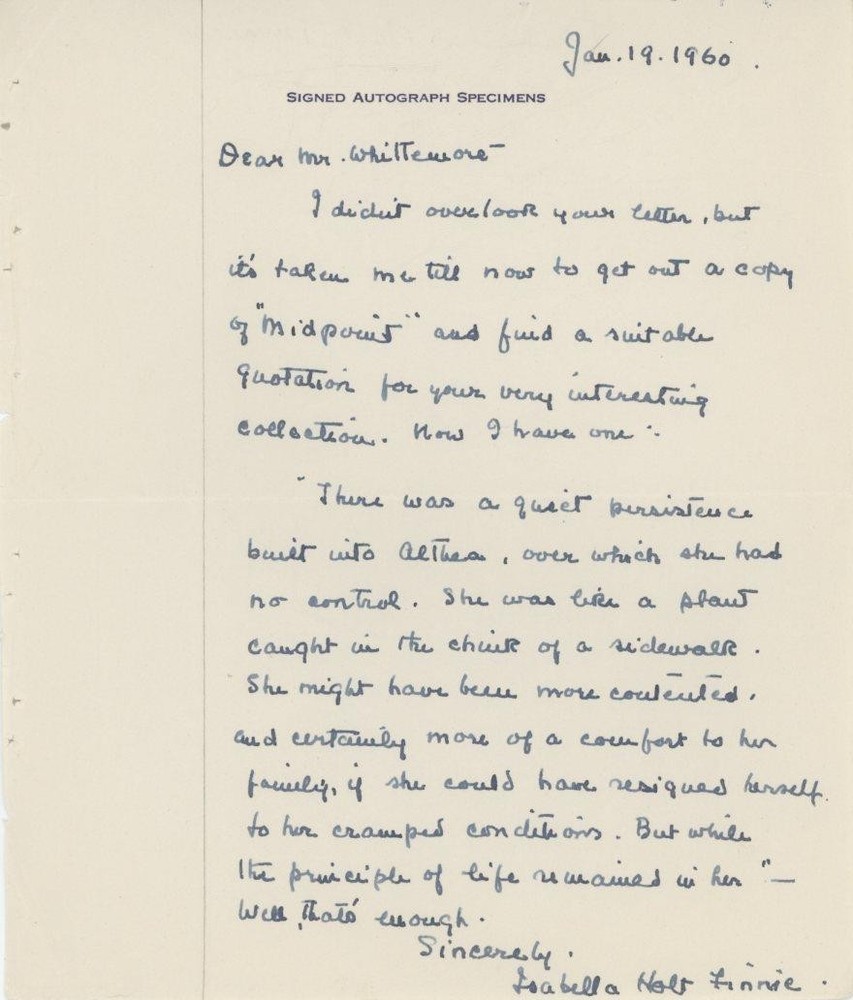 Jan. 19. 1960.
SIGNED AUTOGRAPH SPECIMENS
Dear Mr. Whittemore–
I didn't overlook your letter, but
it's taken me till now to get out a copy
of "Midpoint" and find a suitable
quotation for your very interesting
collection. Now I have one:
"There was a quiet persistence
built into Althea, over which she had
no control. She was like a plant
caught in the chink of a sidewalk.
She might have been more contented,
and certainly more of a comfort to her
family, if she could have resigned herself
to her cramped conditions. But while
the principle of life remained in her"—
Well, that's enough.
Sincerely.
Isabella Holt Finnie.